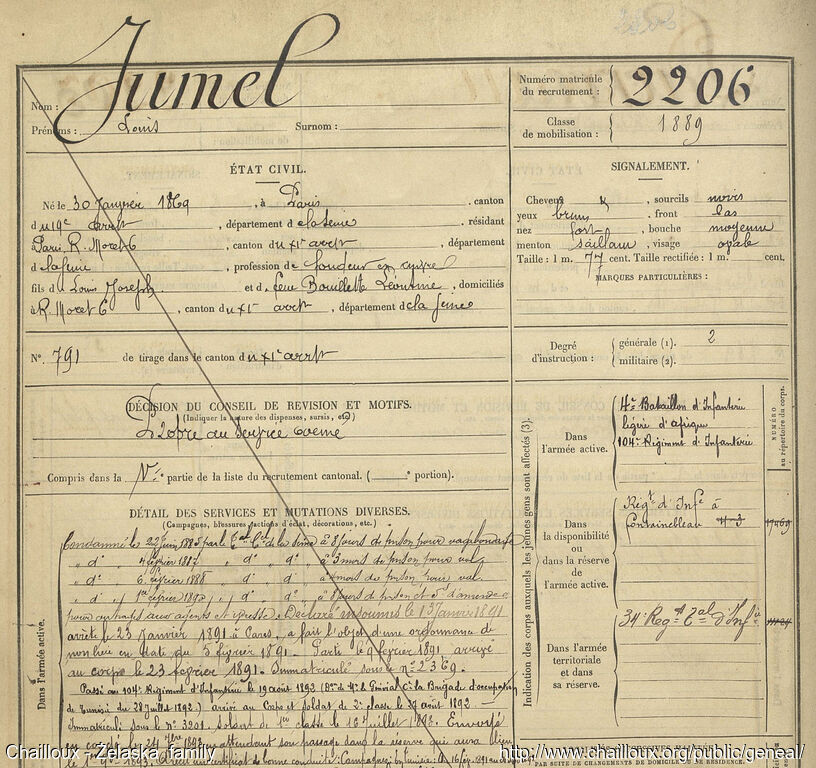 Jumel
Nom :
Prénoms : Louis Surnom :
Numéro matricule du recrutement : 2206
Classe de mobilisation : 1889
ÉTAT CIVIL.
Né le 30 Janvier 1869, à Paris, canton
du 19e arrt, département de la Seine, résidant
Paris R. Moret 6, canton du XIe arrt, département
de la Seine, profession de fondeur en cuivre
fils de Louis Joseph et de feue Bouillette Léontine, domiciliés
à R. Moret 6, canton du XIe arrt, département de la Seine
SIGNALEMENT.
Cheveux, sourcils noirs
yeux bruns, front bas
nez fort, bouche moyenne
menton saillant, visage ovale
Taille : 1 m. 77 cent. Taille rectifiée : 1 m. cent.
MARQUES PARTICULIÈRES :
N° 791 de tirage dans le canton du XIe arrt
Degré d'instruction : générale (1). 2
militaire (2).
DÉCISION DU CONSEIL DE REVISION ET MOTIFS.
(Indiquer la nature des dispenses, sursis, etc.)
Propre au Service
Compris dans la partie de la liste du recrutement cantonal. ( portion).
DÉTAIL DES SERVICES ET MUTATIONS DIVERSES.
(Campagnes, blessures, actions d'éclat, décorations, etc.)
Dans l'armée active.
Condamné le 23 Juin par le de la Seine à 8 jours de prison pour vagabondage
" d° 4 février 1887 " d° d° à 3 mois de prison pour vol
" d° 6 février 1888 " d° d° à 4 mois de prison pour vol.
" d° 1er février " d° d° à 8 jours de prison et 5f d'amende
pour outrages aux agents et ivresse. Déclaré insoumis le 13 Janvier 1891
arrêté le 23 janvier 1891 à Paris, a fait l'objet d'une ordonnance de
non lieu en date du 5 février 1891. Parti le 9 février 1891 arrivé
au corps le 23 février 1891. Immatriculé sous le n° 2369.
Passé au 104e Régiment d'Infanterie le 19 août 1892 la Brigade d'occupation
de Tunisie du 28 Juillet 1892) arrivé au Corps et soldat de 2e classe le août 1892
Immatriculé sous le n° 3201. Soldat de 1ère classe le juillet 1893. Envoyé
en congé le 24 7bre 1893 en attendant son passage dans la réserve qui aura lieu
le 1893. certificat de bonne conduite. Campagnes :
Indication des corps auxquels les jeunes gens sont affectés (3).
Dans l'armée active.
4e Bataillon d'Infanterie
légère d'Afrique
104e Régiment d'Infanterie
NUMÉRO au répertoire du corps.
Dans la disponibilité ou dans la réserve de l'armée active.
Regt d'Infe à
Fontainebleau
Dans l'armée territoriale et dans sa réserve.
34e Regt Tal d'Infie
PAR SUITE DE CHANGEMENTS DE DOMICILE OU DE RÉSIDENCE.
Chailloux - Zelaska family
http://www.chailloux.org/public/geneal/